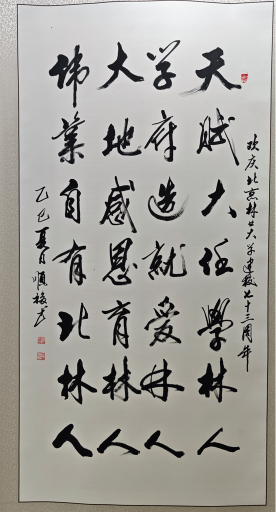 欢庆北京林业大学建校七十三周年
天賦大任學林人
学府造就愛林人
大地感恩育林人
偉業自有北林人
乙巳夏月順